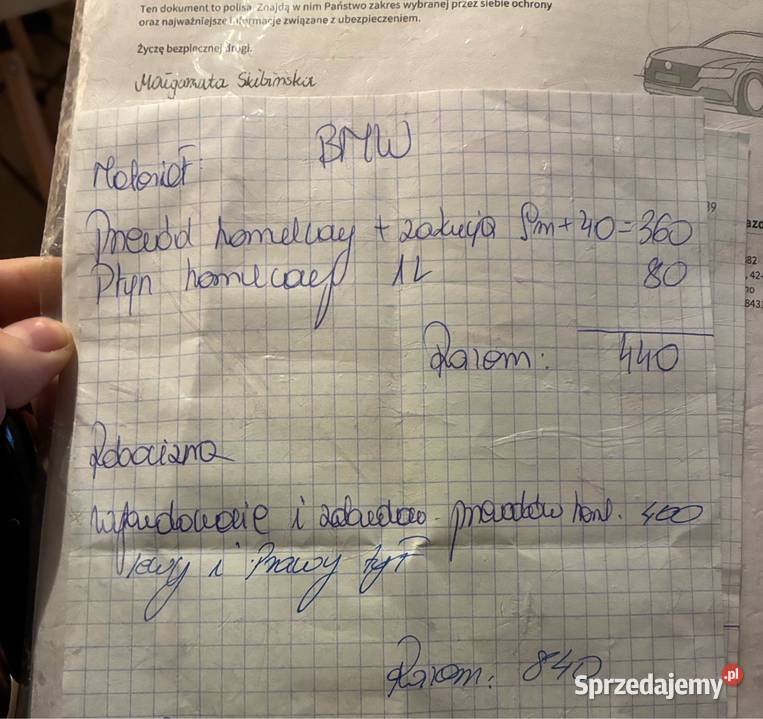 Ten dokument to polisa. Znajdą w nim Państwo zakres wybranej przez siebie ochrony
oraz najważniejsze informacje związane z ubezpieczeniem.
Życzę bezpiecznej drogi.
Małgorzata Skibińska
BMW
Materiał:
Przewód hamulcowy + zakucia 8m + 40 = 360
Płyn hamulcowy 1L 80
Razem: 440
Robocizna
Wybudowanie i zabudow. przewodów ham. 400
lewy i Prawy tył
Razem: 840
82
, 42-
843
Sprzedajemy.pl